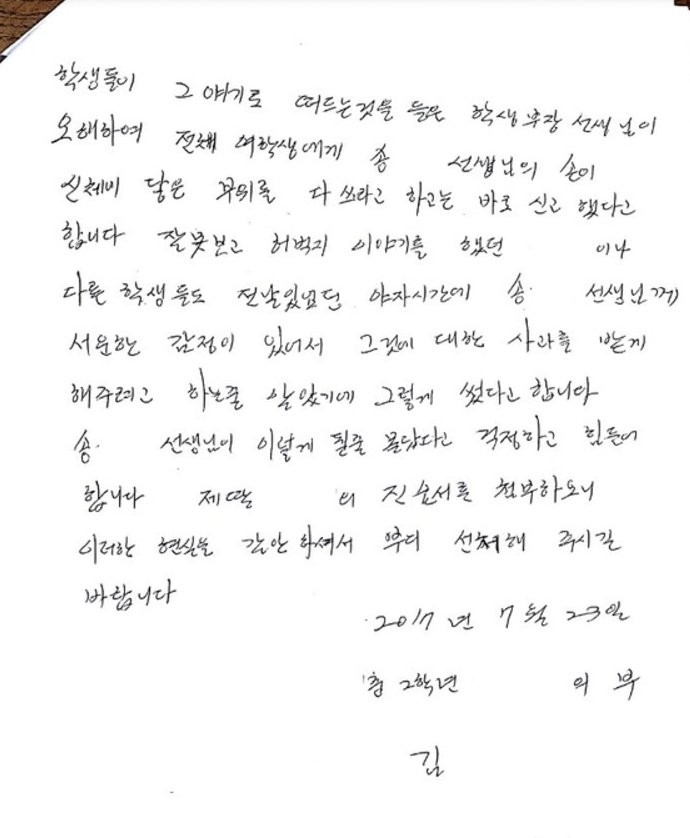 학생들이 그 얘기로 떠드는것을 들은 학생부장 선생님이
오해하여 전체 여학생에게 송 선생님의 손이
신체에 닿은 부위를 다 쓰라고 하고는 바로 신고 했다고
합니다 잘못보고 허벅지 이야기를 했던 이나
다른 학생들도 전날있었던 야자시간에 송 선생님께
서운한 감정이 있어서 그것에 대한 사과를 받게
해주려고 하는줄 알았기에 그렇게 썼다고 합니다
송 선생님이 이렇게 될줄 몰랐다고 걱정하고 힘들어
합니다 제딸 의 진술서를 첨부하오니
이러한 현실을 감안하셔서 부디 선처해 주시길
바랍니다
2017년 7월 23일
중 2학년 의 부
김